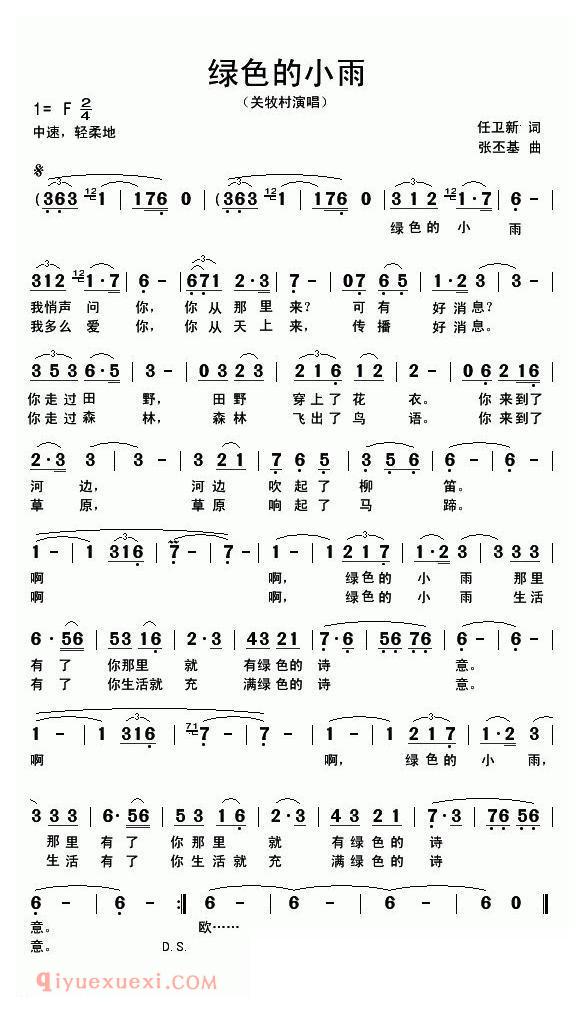 绿色的小雨
（关牧村演唱）
1= F 2/4
中速，轻柔地
任卫新 词
张丕基 曲
(363 12 1 | 176 0 | (363 12 1 | 176 0 | 3 1 2 12 1·7 | 6 - |
绿色的 小 雨
312 12 1·7 | 6 - | 671 2·3 | 7 - | 07 6 5 | 1·2 3 | 3 - |
我悄声 问 你，你 从 那 里 来？ 可 有 好 消息？
我多么 爱 你，你 从 天 上 来， 传 播 好 消息。
3 5 3 6·5 | 3 - | 0 3 2 3 | 2 1 6 1 2 | 2 - | 0 6 2 16 |
你 走 过 田 野， 田野 穿 上 了 花 衣。 你 来到了
你 走 过 森 林， 森林 飞 出 了 鸟 语。 你 来到了
2·3 3 | 3 - | 3 21 | 7 6 5 | 3 5 6 | 6 - | 6 - |
河 边， 河 边 吹 起 了 柳 笛。
草 原， 草 原 响 起 了 马 蹄。
1 - | 1 316 | 7 - | 7 - | 1 217 | 1·2 3 | 3 3 3 |
啊 啊， 绿色的 小 雨 那里
啊 啊， 绿色的 小 雨 生活
6· 56 | 53 16 | 2·3 | 43 21 | 7·6 | 56 76 | 6 - | 6 - |
有 了 你那里 就 有绿色的 诗 意。
有 了 你生活就 充 满绿色的 诗 意。
1 - | 1 316 | 71 7 - | 7 - | 1 217 | 1·2 3 |
啊 啊， 绿色的 小 雨，
3 3 3 | 6· 56 | 5 3 16 | 2·3 | 4 3 2 1 | 7·3 | 76 56 |
那里 有 了 你 那里 就 有绿色的 诗
生活 有 了 你 生活就 充 满绿色的 诗
6 - | 6 - :| 6 - | 6 - | 6 - | 6 0 ||
意。 欧……
意。 D.S.
qiyuexuexi.COM